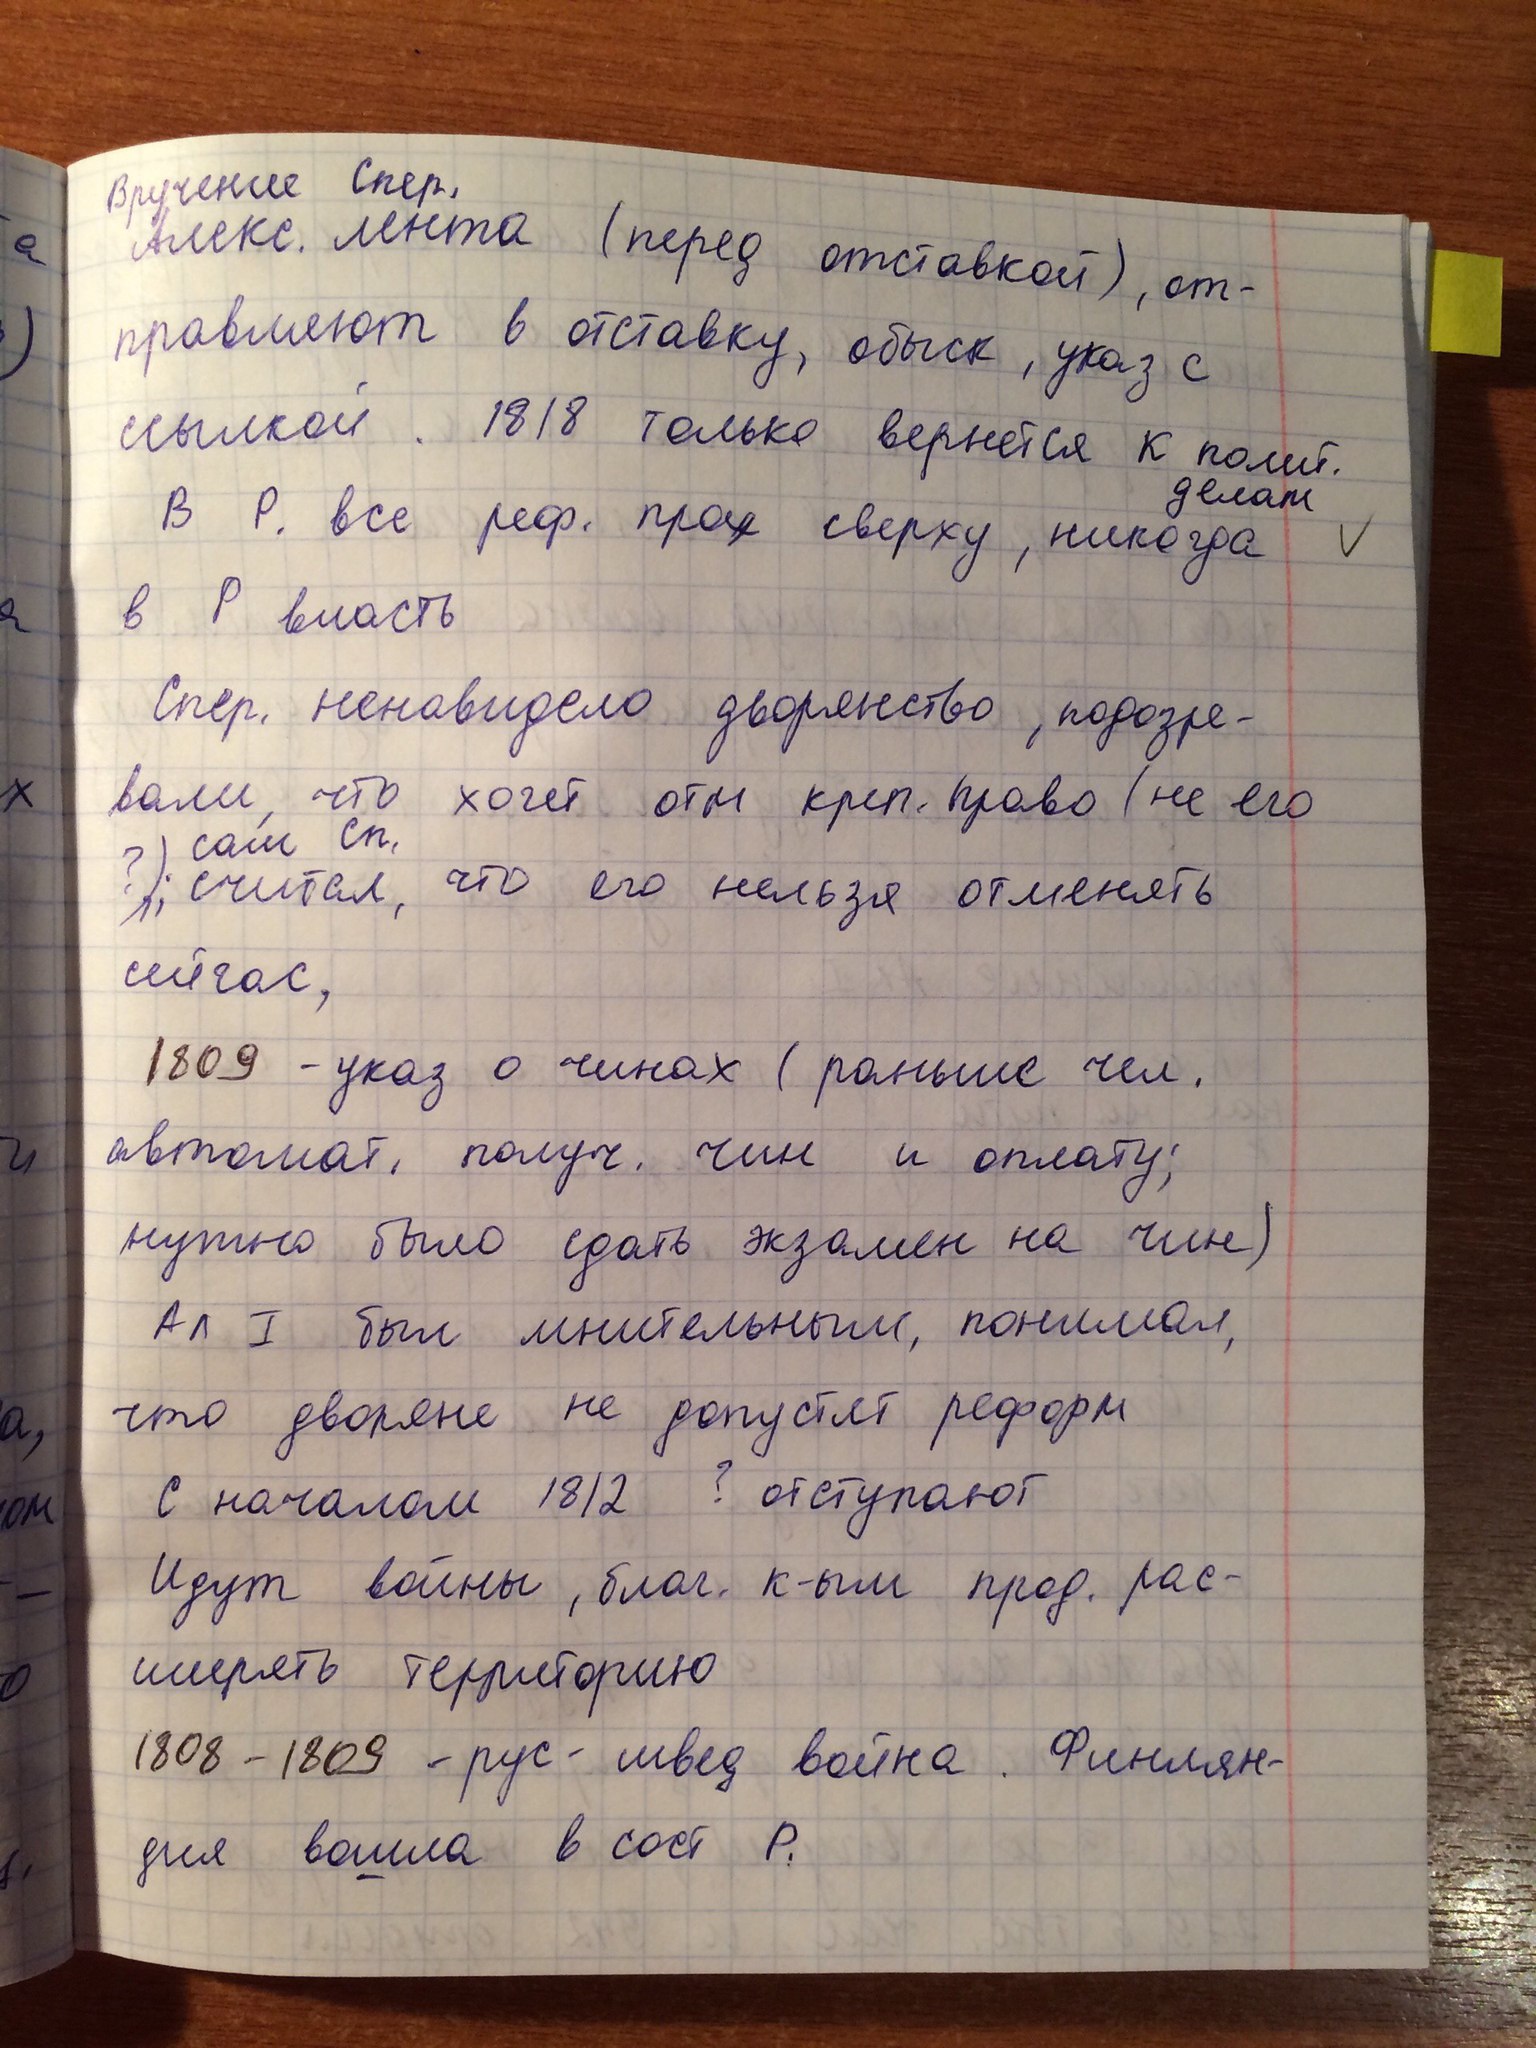 Вручение Спер.
Алекс. лента (перед отставкой), от-
правляют в отставку, обыск, указ с
ссылкой. 1818 только вернется к полит.
делам
В Р. все реф. прох сверху, никогда V
в Р власть
Спер. ненавидело дворянство, подозре-
вали, что хочет отм креп. право (не его
?); сам Сп.
считал, что его нельзя отменять
сейчас,
1809 - указ о чинах (раньше чел.
автомат. получ. чин и оплату;
нужно было сдать экзамен на чин)
Ал I был мнительным, понимал,
что дворяне не допустят реформ
С началом 1812 ? отступают
Идут войны, благ. к-ым прод. рас-
ширять территорию
1808 - 1809 - рус - швед война. Финлян-
дия вошла в сост Р.